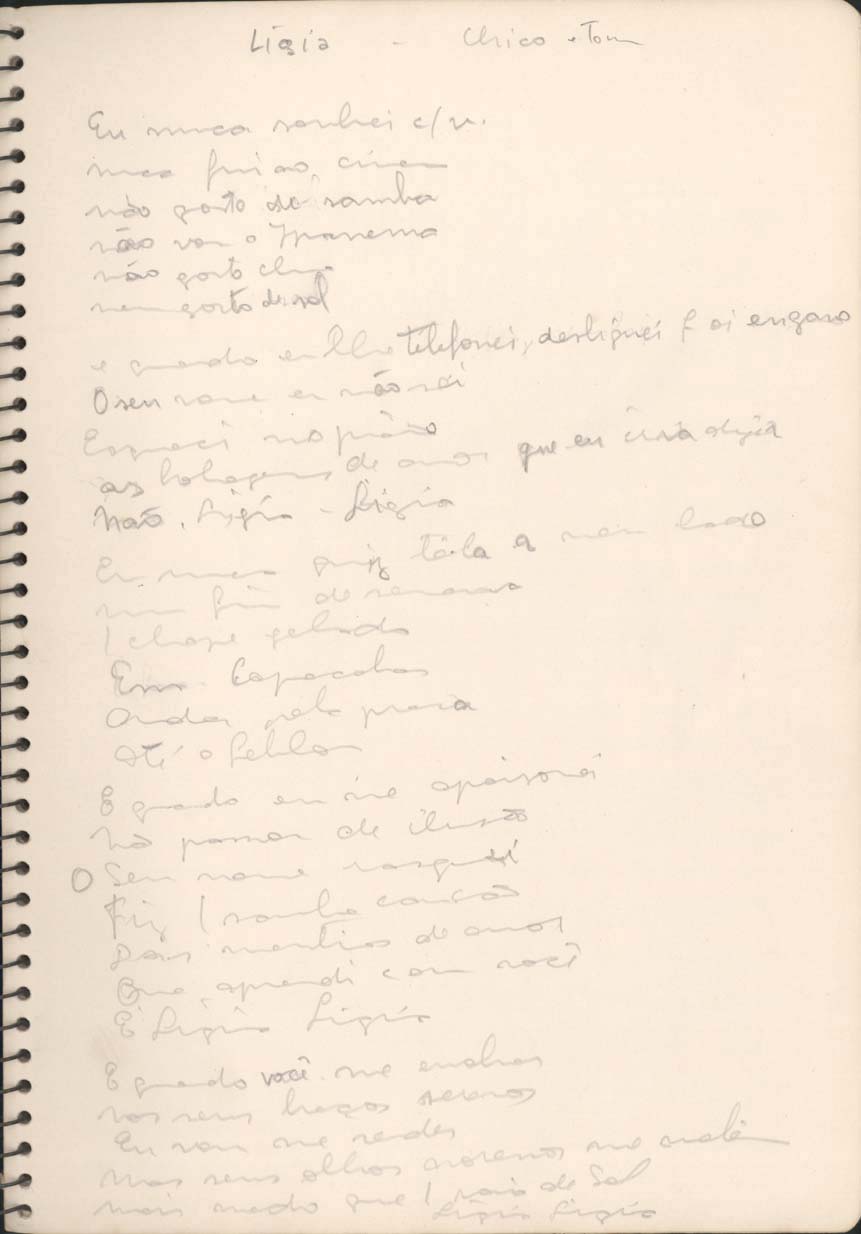 Lígia - Chico e Tom
Eu nunca sonhei c/ v.
nunca fui ao cinema
não gosto de samba
não vou a Ipanema
não gosto chuva
nem gosto de sol
e quando eu lhe telefonei, desliguei foi engano
O seu nome eu não sei
Esqueci no piano
as bobagens de amor que eu iria dizer
Não, Ligia - Ligia
Eu nunca quiz tê-la a meu lado
num fim de semana
1 chope gelado
Em Copacabana
Andar pela praia
Até o Leblon
E quando eu me apaixonei
Não passou de ilusão
O Seu nome rasguei
Fiz 1 samba canção
Das mentiras de amor
Que aprendi com você
É Ligia Ligia
E quando você me envolver
nos seus braços serenos
Eu vou me render
Mas seus olhos morenos me metem
mais medo que 1 raio de Sol
Ligia Ligia